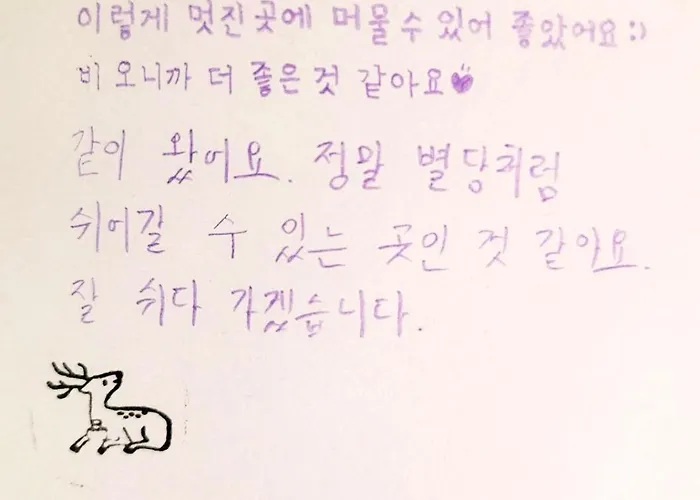 이렇게 멋진 곳에 머물 수 있어 좋았어요 :)
비 오니까 더 좋은 것 같아요♥
같이 왔어요. 정말 별당처럼
쉬어갈 수 있는 곳인 것 같아요.
잘 쉬다 가겠습니다.